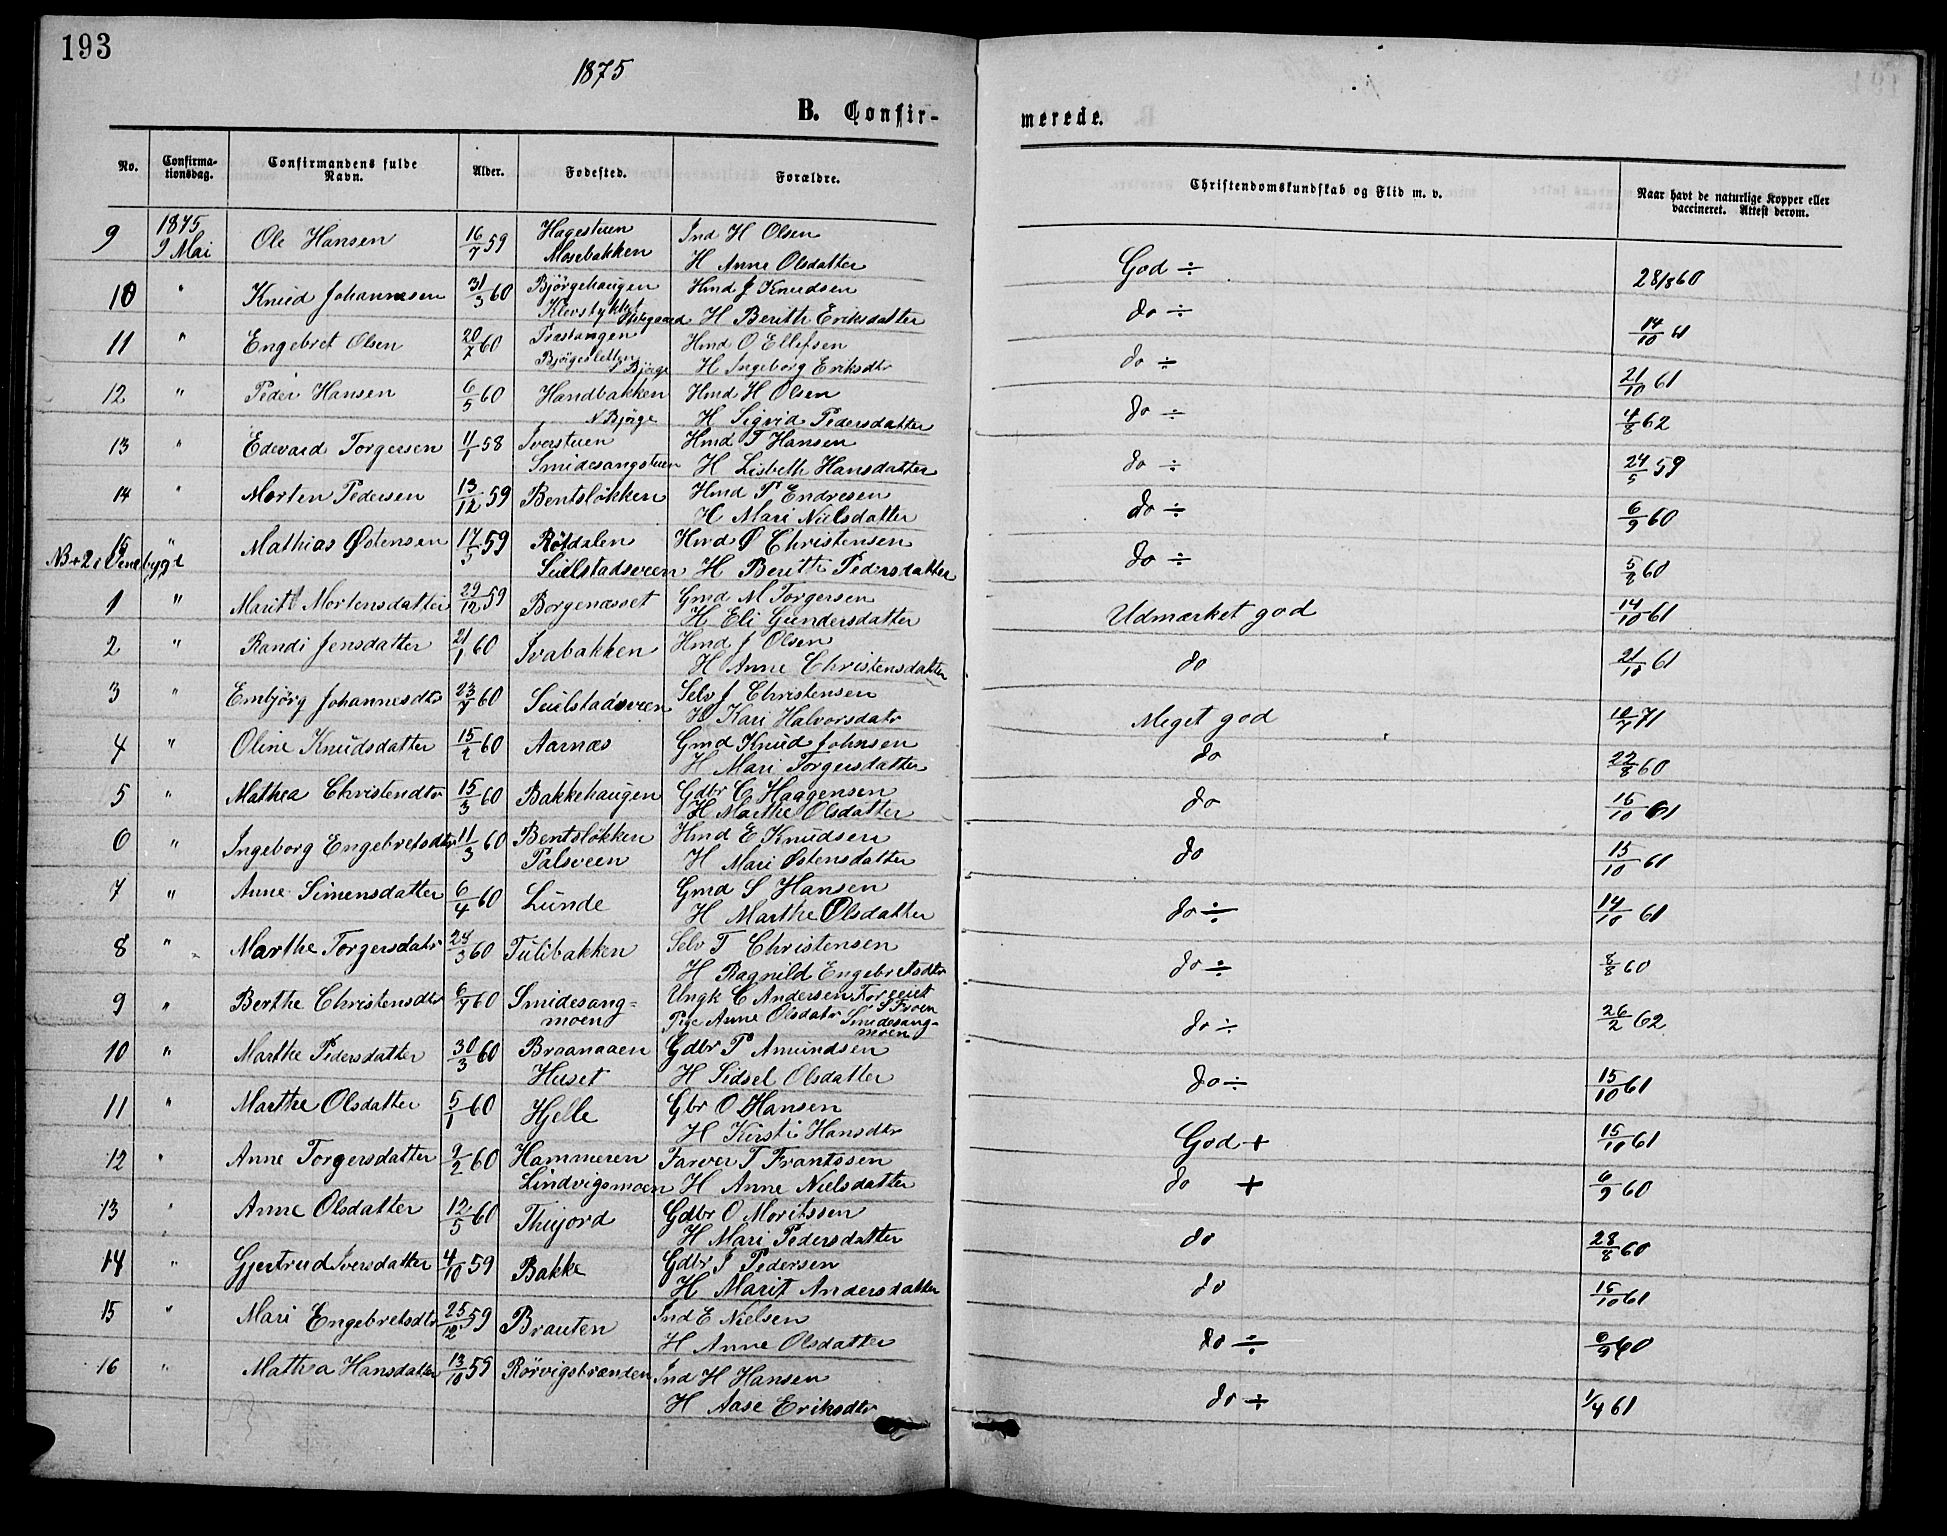 193
1875
B. Confir-
merede.
No.
Confirma-
tionsdag.
Confirmandens fulde
Navn.
Alder.
Fodested.
Forældre.
Christendomskundskab og Flid m. v.
Naar havt de naturlige Kopper eller
vaccineret. Attest derom.
9 1875 9 Mai Ole Hansen 16/7 59 Hagestuen Mosebakken Ind H Olsen H Anne Olsdatter God ÷ 28/8 60
10 " Knud Johannesen 31/3 60 Bjørgehaugen Klevstykket Hmd J Knudsen H Berith Eriksdatter do ÷ 14/10 61
11 " Engebret Olsen 20/7 60 Præstangen Bjørgesletten S Bjørge Hmd O Ellefsen H Ingeborg Eriksdtr do ÷ 21/10 61
12 " Peder Hansen 6/5 60 Handbakken N Bjørge Hmd H Olsen H Sigrid Pedersdatter do ÷ 4/8 62
13 " Edevard Torgersen 11/1 58 Iverstuen Smidesangstuen Hmd T Hansen H Lisbeth Hansdatter do ÷ 24/5 59
14 " Morten Pedersen 13/12 59 Bentsløkken Hmd P Endresen H Mari Nielsdatter do ÷ 6/9 60
15 " Mathias Østensen 17/5 59 Røtdalen Sielstadsveen Hmd Ø Christensen H Berith Pedersdatter do ÷ 5/8 60
NB + 2 i Venebygd
1 " Marit Mortensdatter 29/12 59 Borgenæsset Gmd M Torgersen H Eli Gundersdatter Udmærket god 14/10 61
2 " Randi Jensdatter 21/1 60 Ivabakken Hmd J Olsen H Anne Christensdatter do 21/10 61
3 " Embjørg Johannesdtr 23/7 60 Sielstadsveen Selv J Christensen H Kari Halvorsdatr Meget god 10/7 71
4 " Oline Knudsdatter 15/2 60 Aarnæs Gmd Knud Johnsen H Mari Torgersdatter do 22/8 60
5 " Mathea Christendtr 15/3 60 Bakkehaugen Gdbr C Haagensen H Marthe Olsdatter do 15/10 61
6 " Ingeborg Engebretsdtr 11/3 60 Bentsløkken Palsveen Hmd E Knudsen H Mari Østensdatter do 15/10 61
7 " Anne Simensdatter 6/4 60 Lunde Gmd S Hansen H Marthe Olsdatter do ÷ 14/10 61
8 " Marthe Torgersdatr 24/3 60 Tulibakken Selv T Christensen H Ragnild Engebretsdtr do ÷ 8/8 60
9 " Berthe Christensdtr 6/7 60 Smidesang= moen Ungk C Andersen S Froen Pige Anne Olsdatr Smidesang= moen do ÷ 26/2 62
10 " Marthe Pedersdatter 30/3 60 Braanaaen Huset Gdbr P Amundsen H Sidsel Olsdatter do ÷ 15/10 61
11 " Marthe Olsdatter 5/1 60 Hjelle Gbr O Hansen H Kirsti Hansdtr God + 15/10 61
12 " Anne Torgersdatter 9/2 60 Hammeren Lindvigsmoen Farver T Frantssen H Anne Nielsdatter do + 6/9 60
13 " Anne Olsdatter 12/5 60 Thujord Gdbr O Moritssen H Mari Pedersdatter do 28/8 60
14 " Gjertrud Iversdatter 4/10 59 Bakke Gdbr I Pedersen H Marit Andersdatter do 15/10 61
15 " Mari Engebretsdtr 25/12 59 Brauten Ind E Nielsen H Anne Olsdatter do ÷ 6/9 60
16 " Mathea Hansdatter 13/10 59 Rørvigstranden Ind H Hansen H Aase Eriksdtr do ÷ 1/4 61